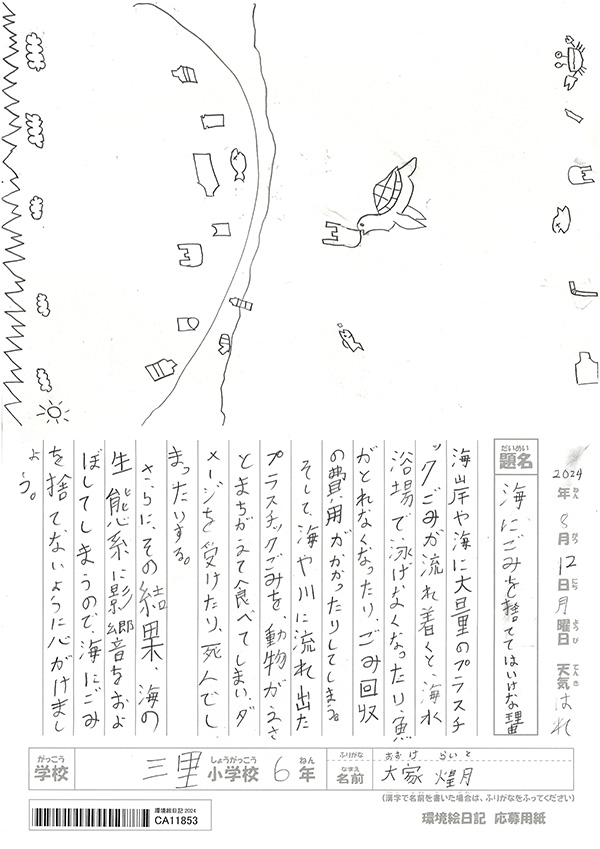 2024年ねん8月がつ12日にち月曜日ようび 天気てんきはれ
だいめい
題名
海にごみを捨ててはいけない理由
海岸や海に大量のプラスチ
ックごみが流れ着くと、海水
浴場で、泳げなくなったり、魚
がとれなくなったり、ごみ回収
の費用がかかったりしてしまう。
そして、海や川に流れ出た
プラスチックごみを、動物がえさ
とまちがえて食べてしまい、ダ
メージを受けたり、死んでし
まったりする。
さらに、その結果、海の
生態系に影響をおよ
ぼしてしまうので、海にごみ
を捨てないように心がけまし
ょう。
がっこう しょうがっこう ねん
学校 三里 小学校 6年
ふりがな おおけ らいと
なまえ
名前 大家 煌月
(漢字で名前を書いた場合は、ふりがなをふってください)
環境絵日記 2024
CA11853
環境絵日記 応募用紙